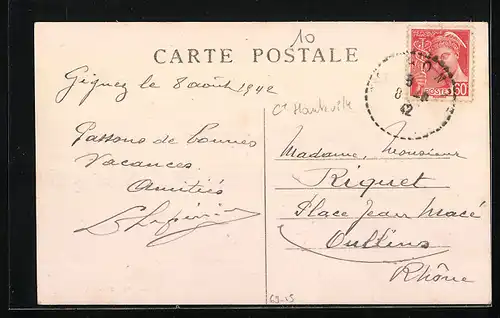 10
CARTE POSTALE
Gignez le 8 août 1942
Passons de bonnes
Vacances
Amitiés
Madame, Monsieur
Riquet
Place Jean Macé
Oullins
Rhône
POSTES
ON
8
42
69-15